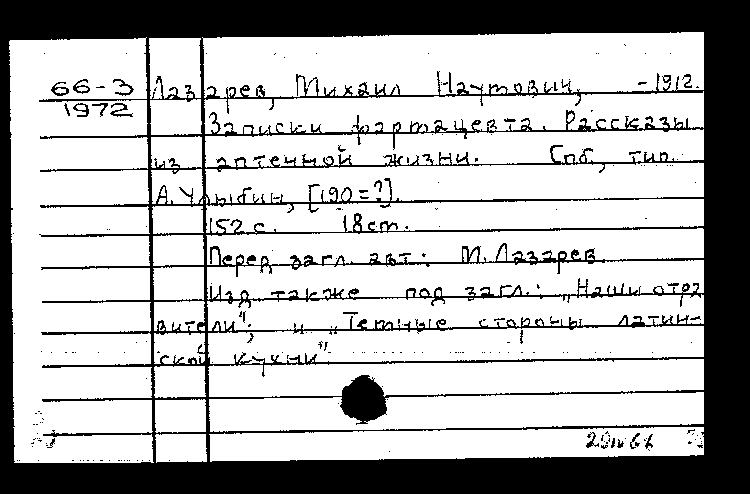 66-3 Лазарев, Михаил Наумович, -1912.
1972
Записки фармацевта. Рассказы
из аптечной жизни. Спб., тип.
А. Улыбин, [190=?].
152 с. 18 cm.
Перед загл. авт: М. Лазарев
Изд. также под загл.: „Наши отра
вители"; и „Темные стороны латин-
ской кухни"